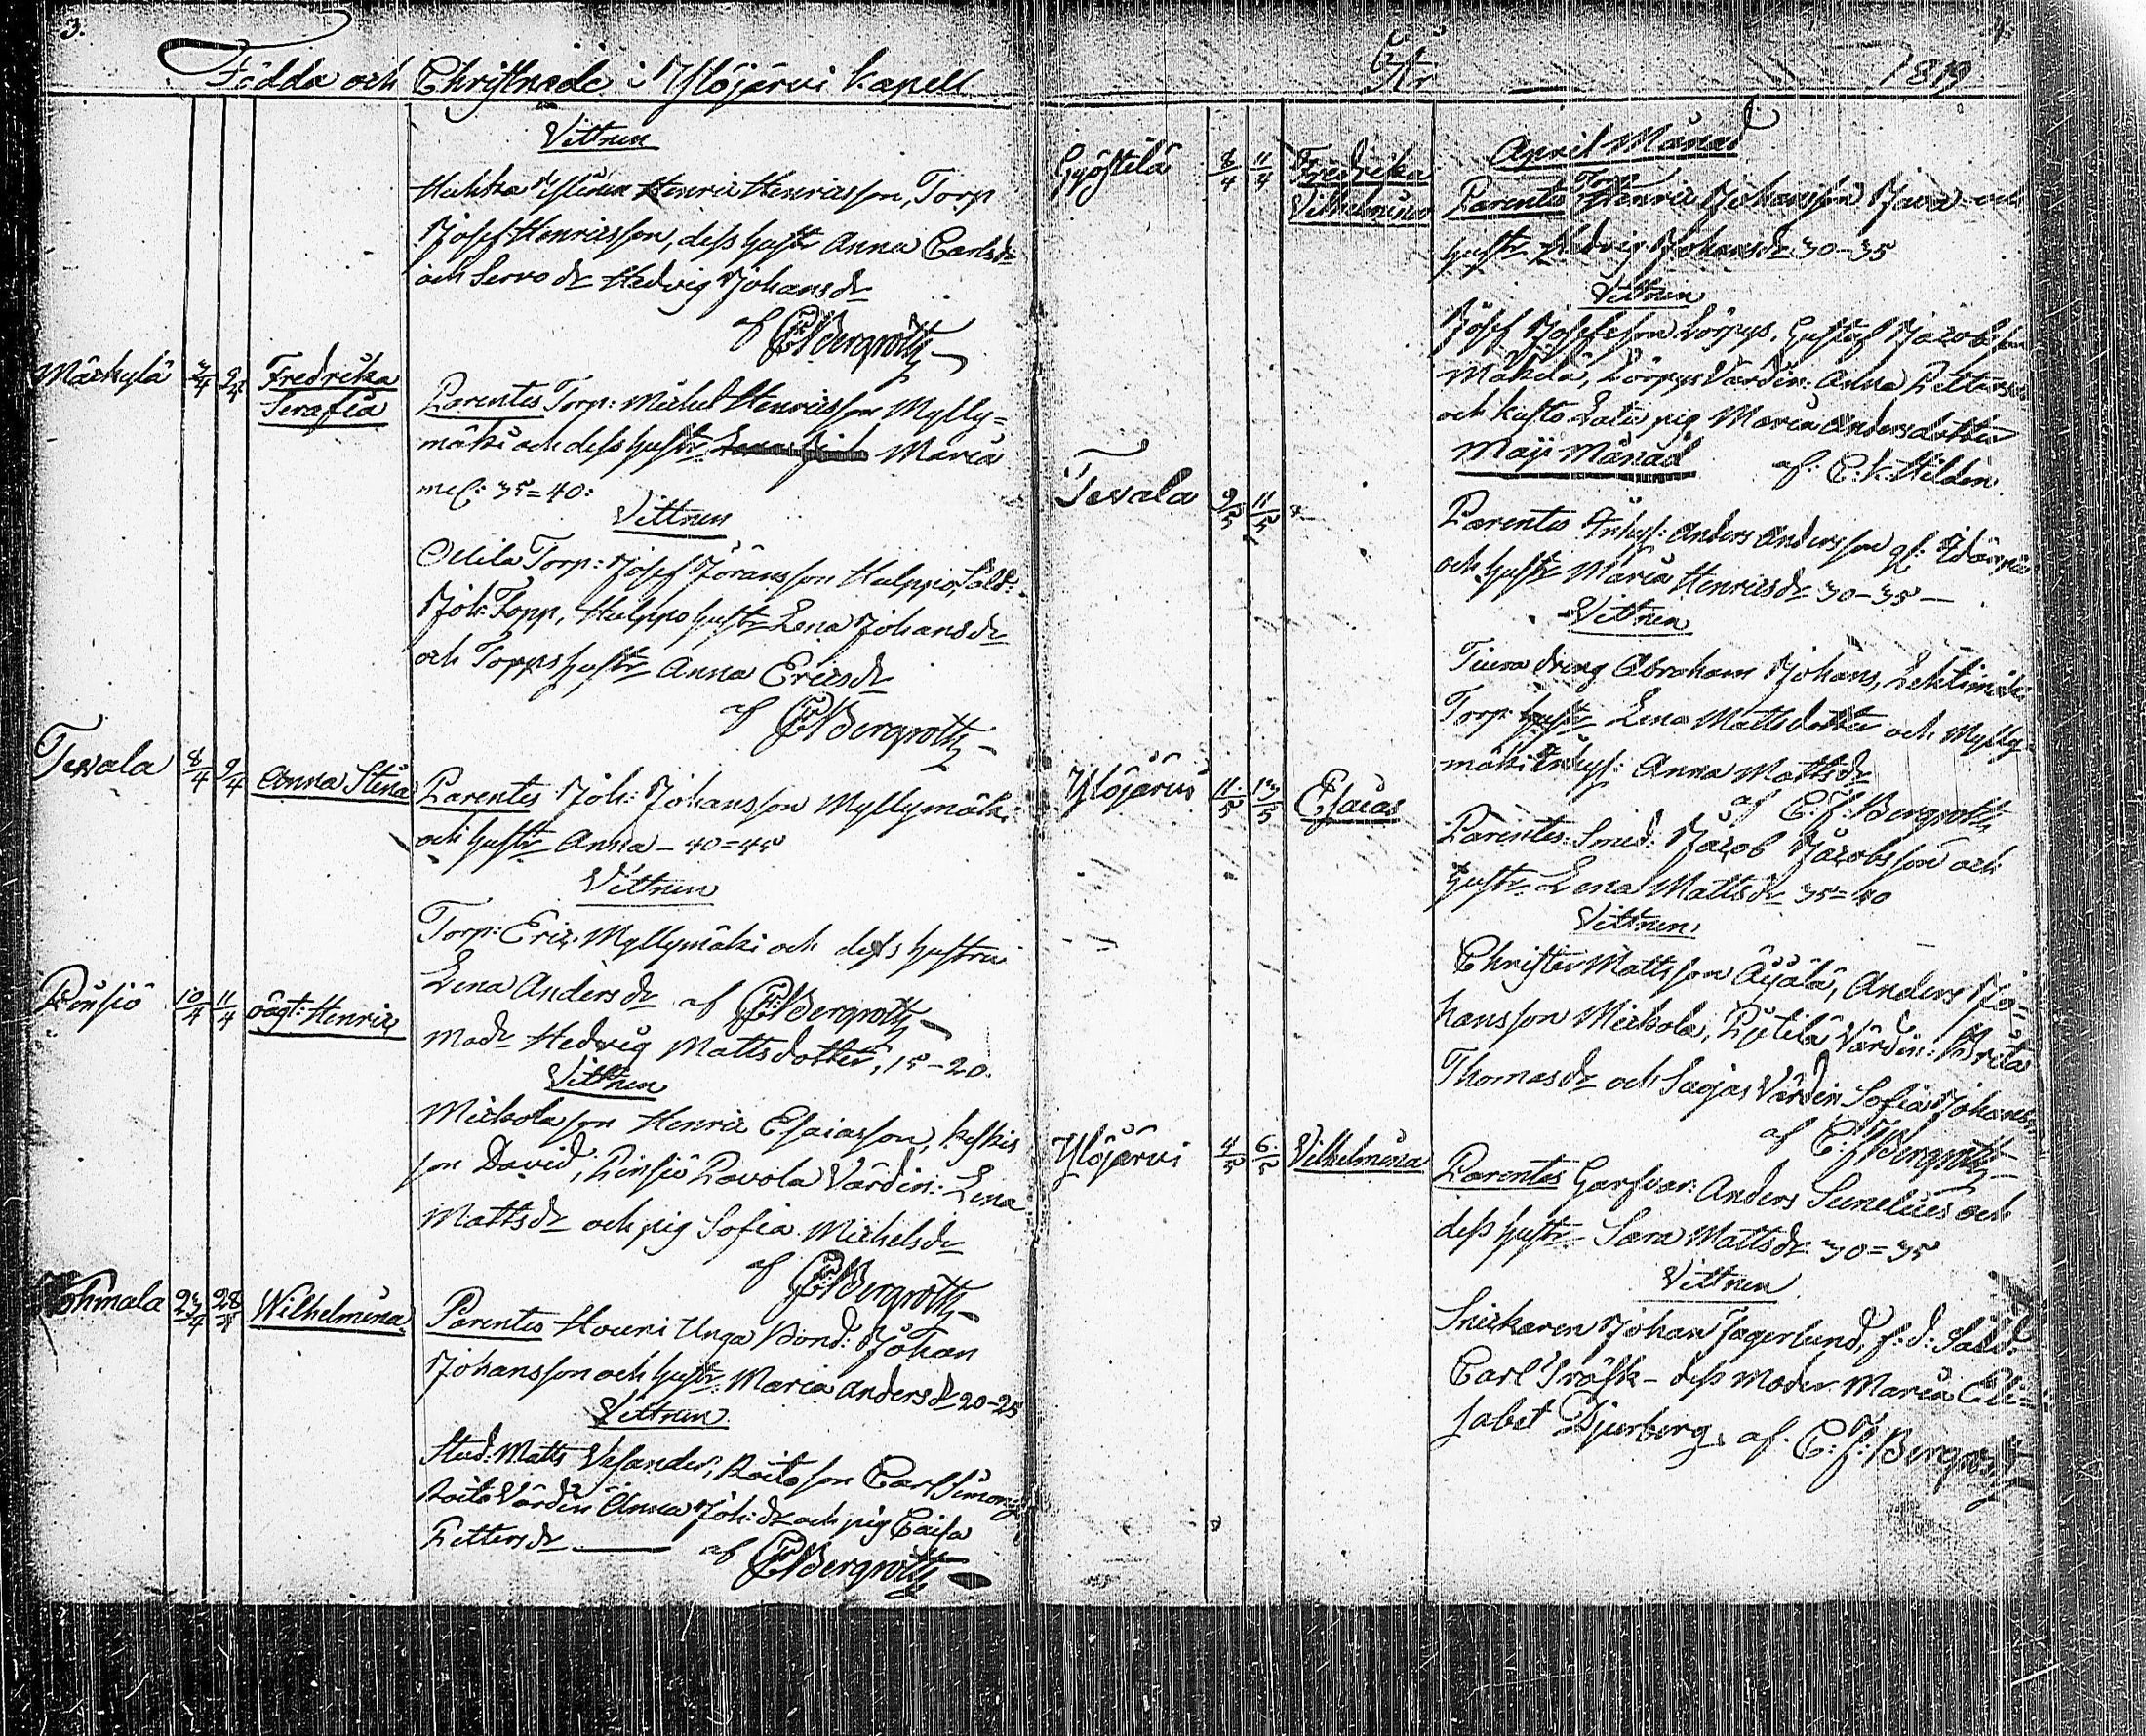 3.
Födda och Christnade i Ylöjärvi Kapell
Vittnen
Henric Henricsson, Torp
Josef Henricsson, dess hustr Anna Carlsdr
och Servo dr Hedvig Johansdr
af CFBergroth
Märkylä 3/4 9/4 Fredrika Serafia
Parentes Torp: Michel Henricsson Mylly=
mäki och dess hustr Maria
35=40:
Vittnen
Ollila Torp: Josef Göransson Hulppo, Sold:
Joh: Topp, Hulppo hustr Lena Johansdr
och Topps hustr Anna Ericsdr
af CFBergroth
Tevala 8/4 9/4 Anna Stina
Parentes Joh: Johansson Myllymäki
och hustr Anna – 40=45
Vittnen
Torp: Eric Myllymäki och dess hustru
Lena Andersdr af CFBergroth
Pinsiö 10/4 11/4 oägt: Henric
Modr Hedvig Mattsdotter, 15–20.
Vittnen
Mickola son Henric Esaiasson, Keskis
son David, Pinsiö Pavola Värdin: Lena
Mattsdr och pig Sofia Michelsdr
af CFBergroth
23/4 28/4 Wilhelmina
Parentes Houni Unga Bond: Johan
Johansson och hustr: Maria Andersdr 20–25
Vittnen
Stud: Matts Vesander, Roito son Carl Simons
Roito Värdin Anna Joh: dr och pig Caisa
Pettersdr — af CFBergroth
År 1819
April Månad
Gyöstilä 8/4 11/4 Fredrika Vilhelmina
Parentes Torp Henric Johansson Java och
hustr Hedvig Johansdr 30–35
Vittnen
Josef Josefsson Lörpys, Gustaf Jacobsson
Mäkelä, Lörpys Värdin: Anna Petters
och pig Maria Andersdotter
af: C. K. Hildén.
Maji Månad
Tevala 9/5 11/5
Parentes Inhys: Anders Andersson
och hustr Maria Henricsdr 30–35 –
Vittnen
dreng Abraham Johans, Lehtimäki
Torp: hustr Lena Mattsdotter och Mylly
mäki Inhys: Anna Mattsdr
af C: f: Bergroth
Ylöjärvi 11/5 13/5 Esaias
Parentes: Smed: Jacob Jacobsson och
hustr Lena Mattsdr 35=40
Vittnen
Christer Mattsson Äijälä, Anders Jo=
hansson Mickola, Värdin: Brita
Thomasdr och Sarjas Värdin Sofia Johans
af C: f: Bergroth
Ylöjärvi 4/5 6/5 Vilhelmina
Parentes Garfvar: Anders Sunelius och
dess hustr Sara Mattsdr 30=35
Vittnen
Snickaren Johan Fagerlund, f: d: Sold:
Carl Träsk – dess moder Maria Eli=
sabet Djerberg, af: C: f: Bergroth